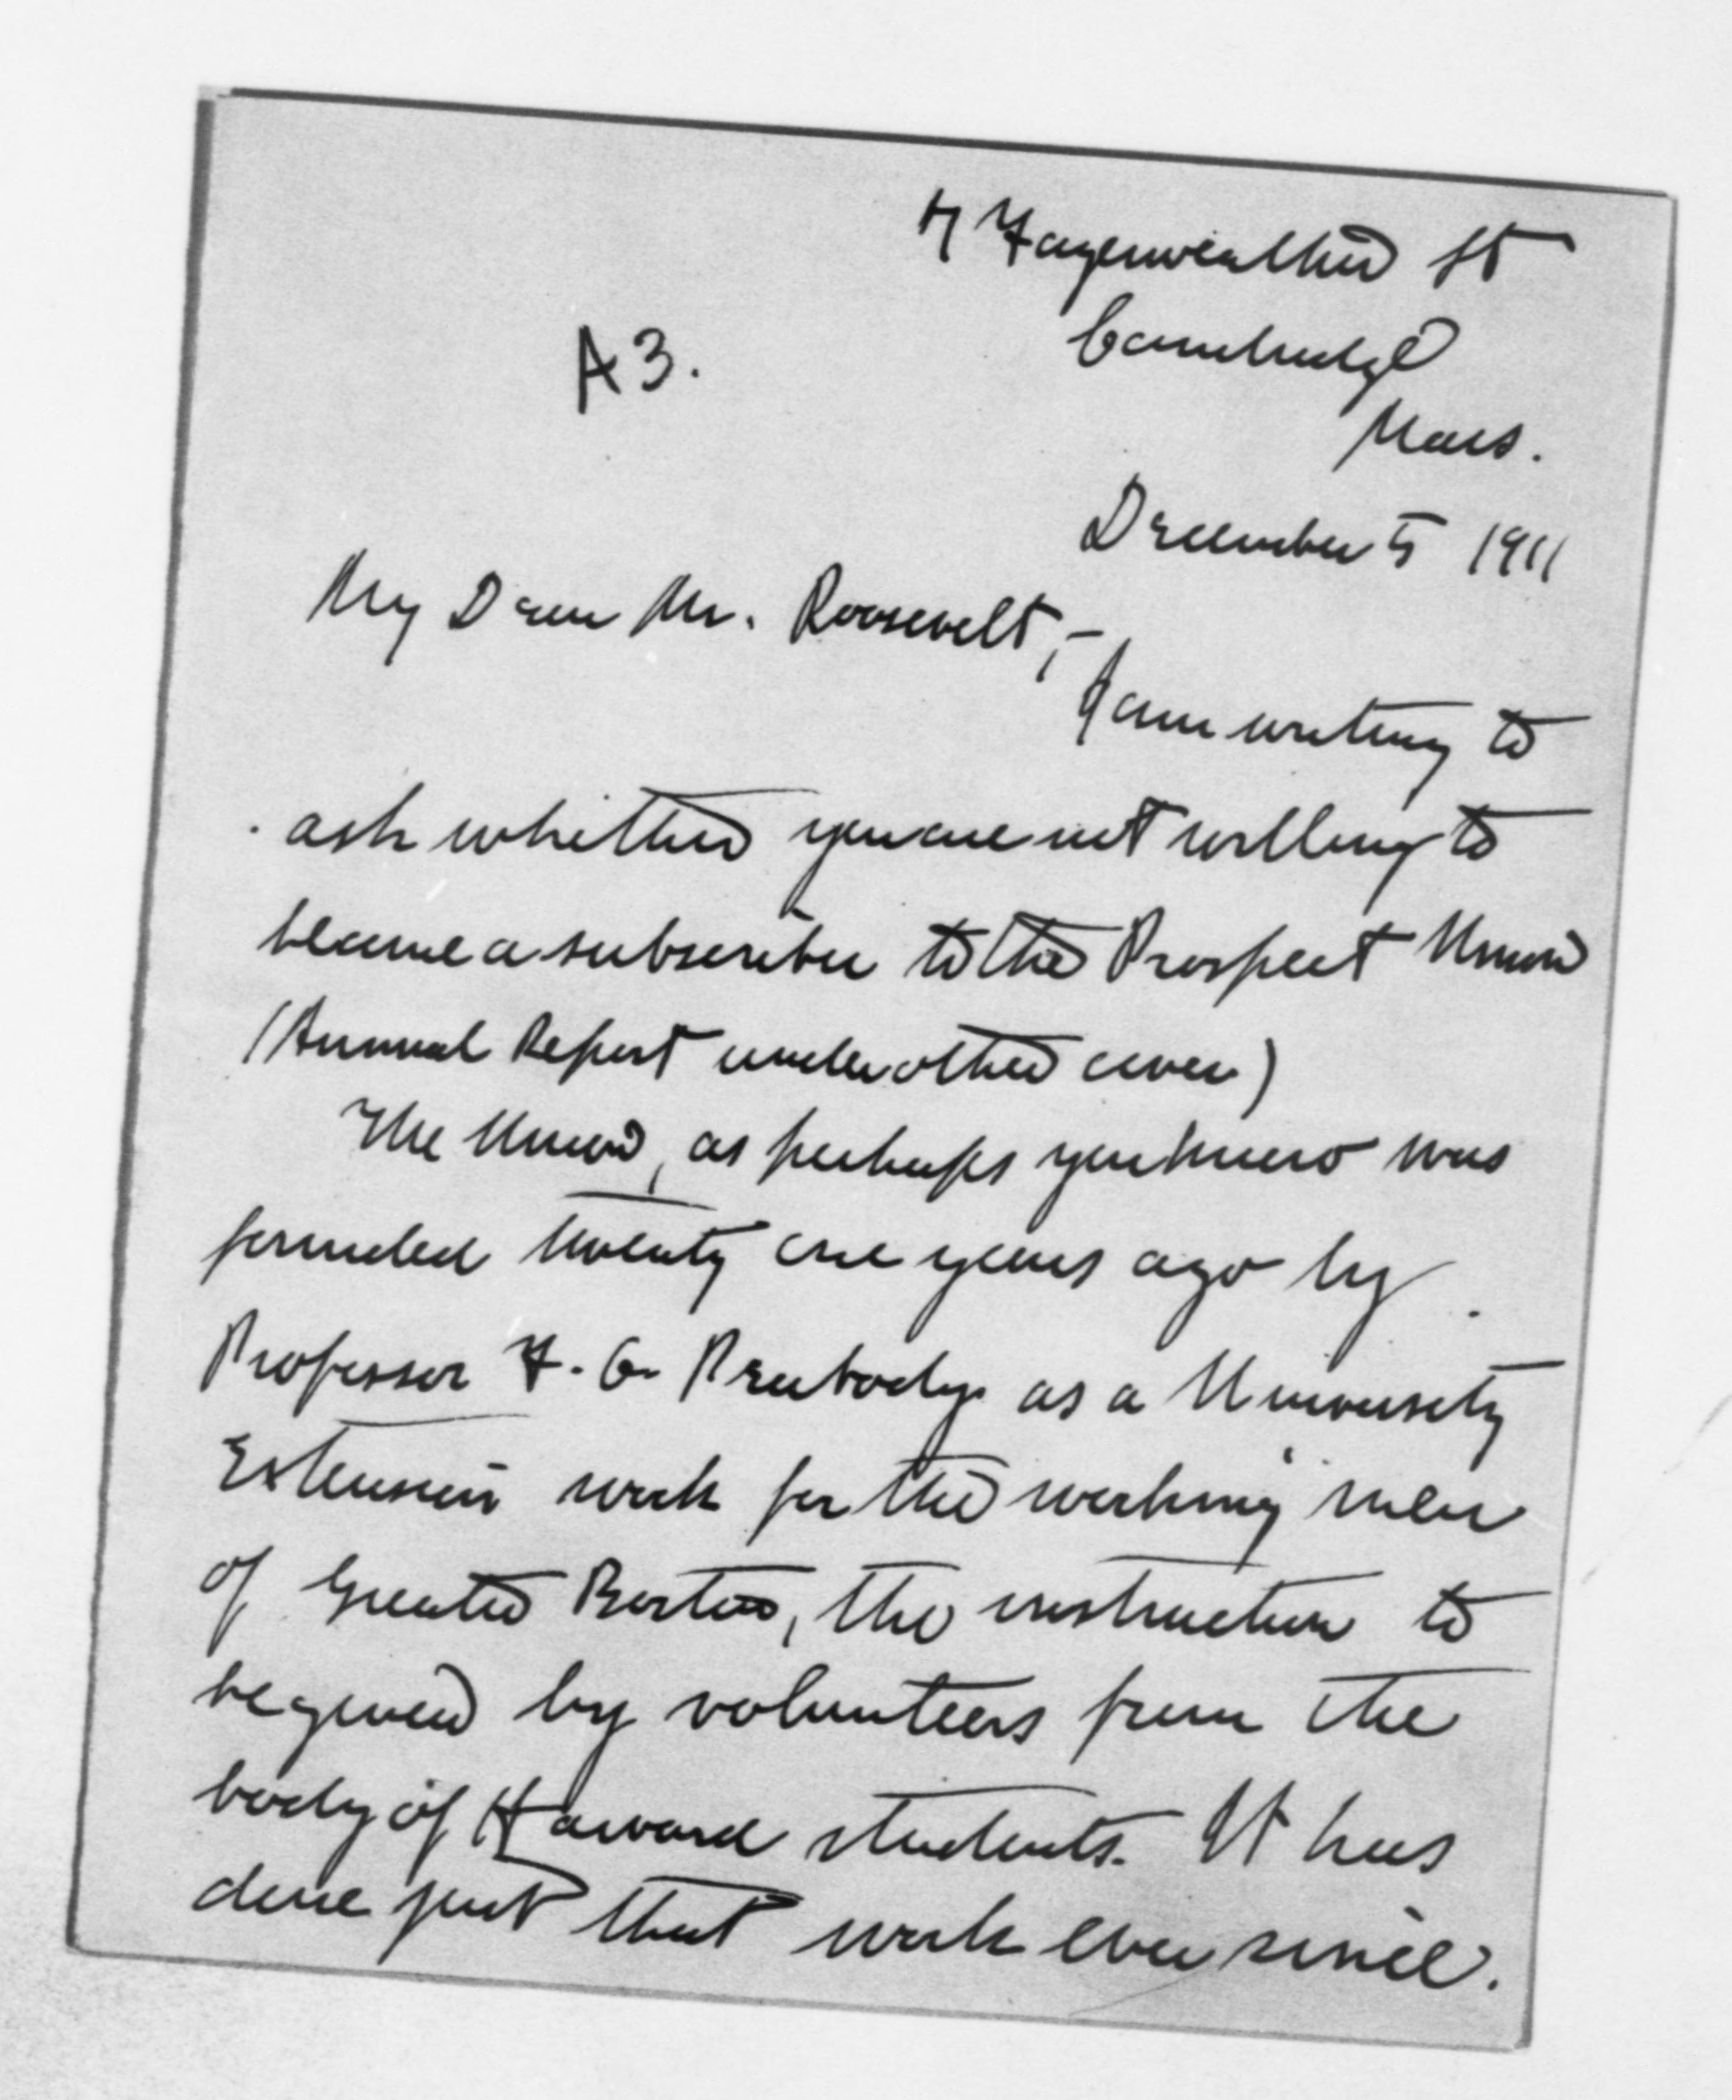 7 Fayerweather St
Cambridge
A 3.
Mass.
December 5 1911
My Dear Mr. Roosevelt,-
I am writing to
ask whether you are not willing to
become a subscriber to the Prospect Union
(Annual Report under other cover)
The Union, as perhaps you know was
founded twenty one years ago by
Professor F. G. Peabody as a University
Extension work for the working men
of Greater Boston, the instruction to
be given by volunteers from the
body of Harvard students. It has
done just that work ever since.